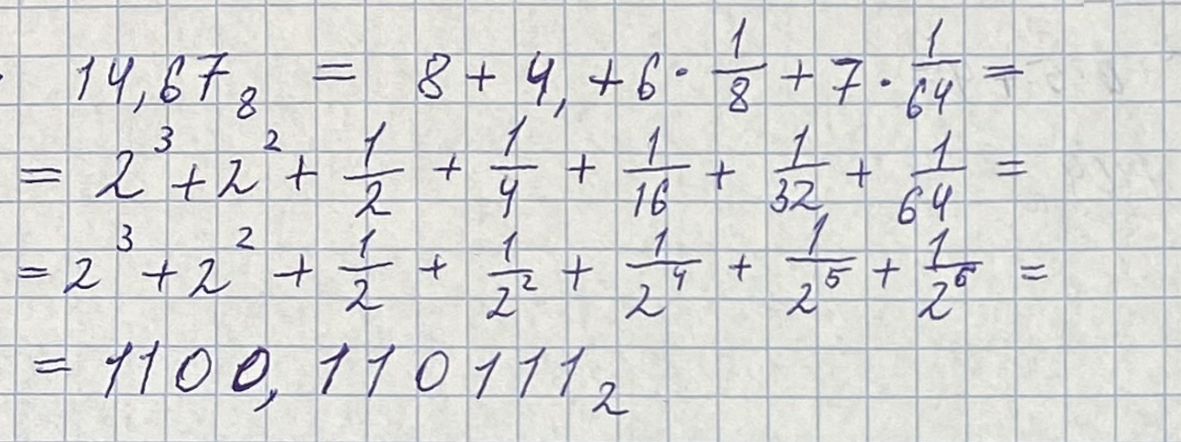 14,67₈ = 8 + 4, + 6 · 1/8 + 7 · 1/64 =
= 2³ + 2² + 1/2 + 1/4 + 1/16 + 1/32 + 1/64 =
= 2³ + 2² + 1/2 + 1/2² + 1/2⁴ + 1/2⁵ + 1/2⁶ =
= 1100,110111₂